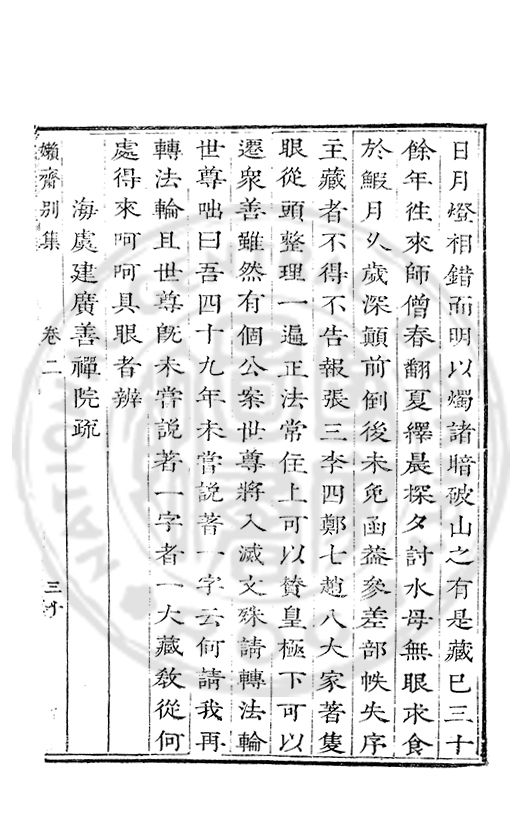 日月燈相錯而明以燭諸暗破山之有是藏巳三十
餘年徃來師僧春翻夏繹晨探夕討水母無眼求食
於鰕月乆歲深顚前倒後未免函葢參差部帙失序
主藏者不得不告報張三李四鄭七趙八大家著隻
眼從頭整理一遍正法常住上可以賛皇極下可以
遷衆善雖然有個公案世尊將入滅文殊請轉法輪
世尊咄曰吾四十九年未甞説著一字云何請我再
轉法輪且世尊旣未甞説著一字者一大藏敎從何
處得來呵呵具眼者辨
海虞建廣善禪院疏
嬾齋別集
卷二
三